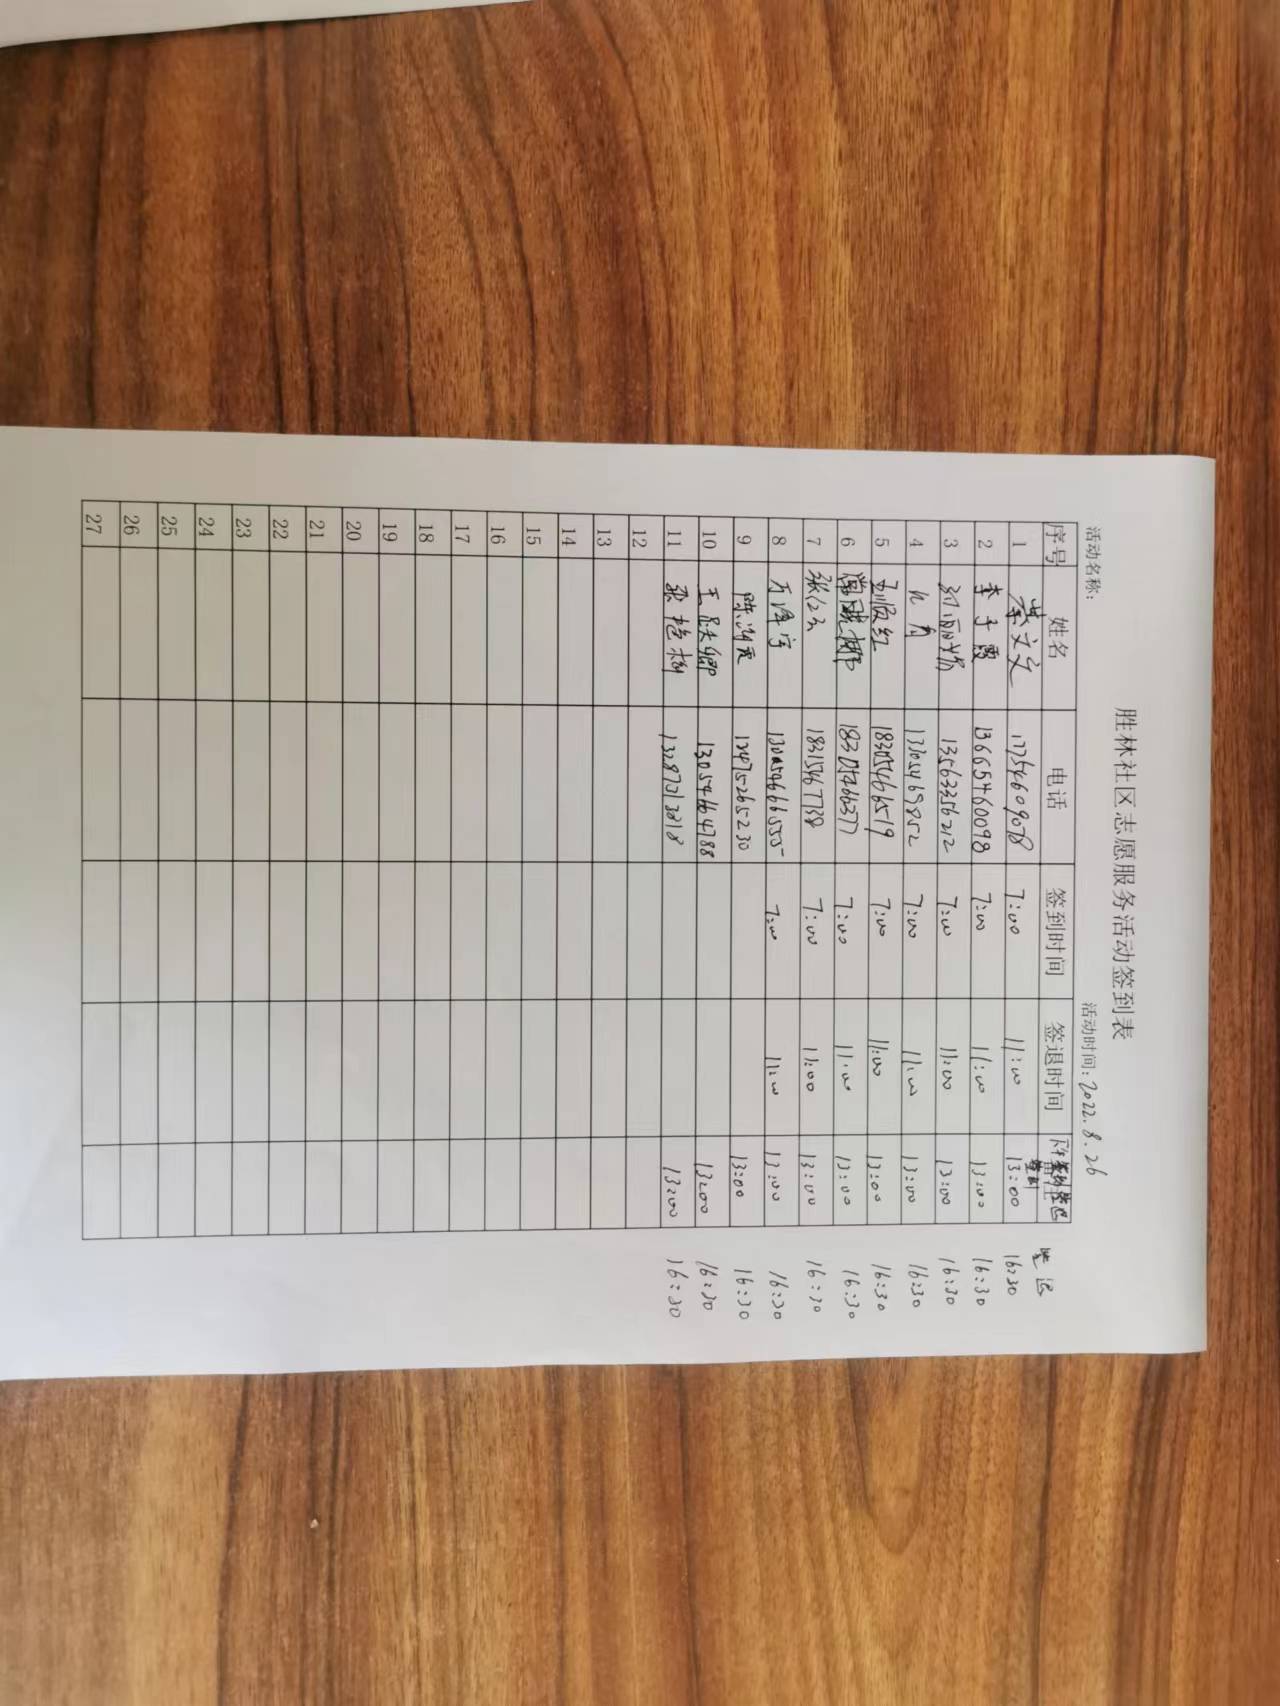 胜林社区志愿服务活动签到表
活动名称： 活动时间：2022.8.26
序号 姓名 电话 签到时间 签退时间 下午签到 签退
1 文文 17754609078 7:00 11:00 13:00 16:30
2 李子霞 13665460098 7:00 11:00 13:00 16:30
3 13563356212 7:00 11:00 13:00 16:30
4 13305469852 7:00 11:00 13:00 16:30
5 18305466519 7:00 11:00 13:00 16:30
6 18305466377 7:00 11:00 13:00 16:30
7 张 18315467738 7:00 11:00 13:00 16:30
8 万泽宇 7:00 11:00 13:00 16:30
9 陈 13:00 16:30
10 王 13054664788 13:00 16:30
11 梁艳梅 13:00 16:30
12
13
14
15
16
17
18
19
20
21
22
23
24
25
26
27